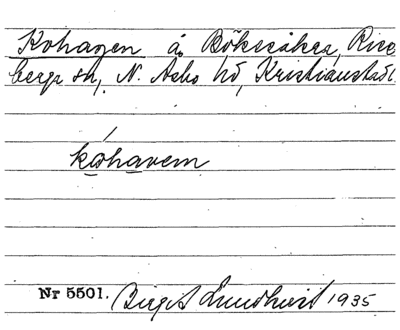 Kohagen å Bökesåkra, Rise
berga sn, N. Asbo hd, Kristianstads l.
kåhavem
Nr 5501. Birgit Lundkvist 1935